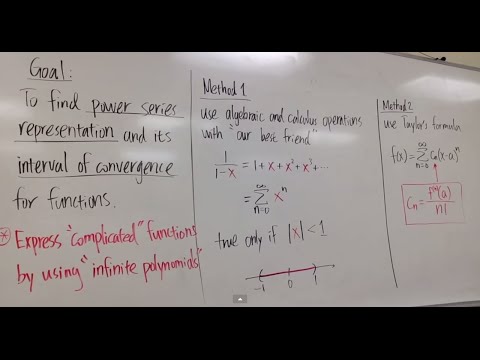 Goal:
To find power series
representation and its
interval of convergence
for functions.
* Express "complicated" functions
by using "infinite polynomials"
Method 1
use algebraic and calculus operations
with "our best friend"
1/(1-x) = 1 + x + x² + x³ + ...
= ∑_{n=0}^{∞} xⁿ
true only if |x| < 1
-1 0 1
Method 2
use Taylor's formula
f(x) = ∑_{n=0}^{∞} Cₙ(x-a)ⁿ
Cₙ = f⁽ⁿ⁾(a)/n!